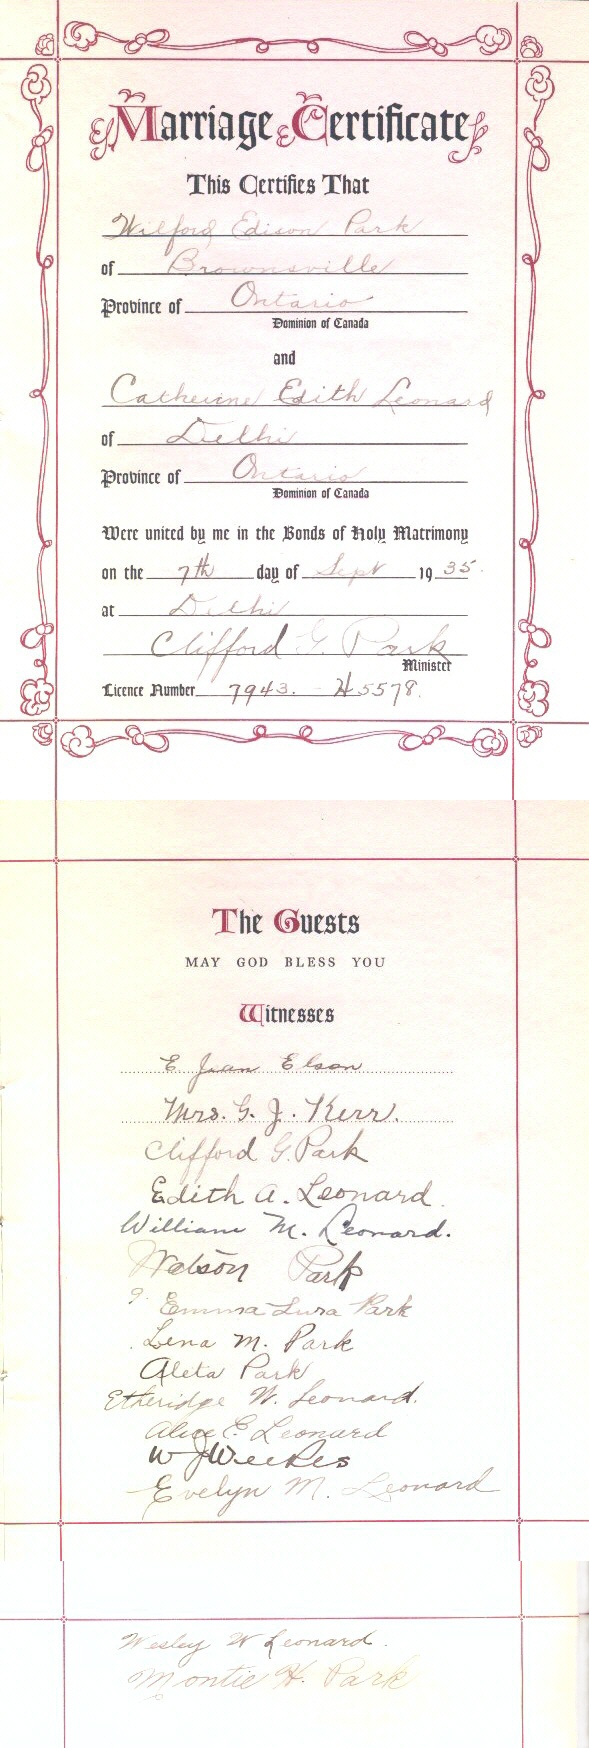 Marriage Certificate
This Certifies That
Wilford Edison Park
of Brownsville
Province of Ontario
Dominion of Canada
and
Catherine Edith Leonard
of Delhi
Province of Ontario
Dominion of Canada
Were united by me in the Bonds of Holy Matrimony
on the 7th day of Sept 1935.
at Delhi
Clifford G. Park
Minister
Licence Number 7943. - H5578.
The Guests
MAY GOD BLESS YOU
Witnesses
E Jean Elson
Mrs. G. J. Kerr.
Clifford G. Park
Edith A. Leonard
William M. Leonard.
Watson Park
Emma Lura Park
Lena M. Park
Aleta Park
Etheridge W. Leonard.
Alice E. Leonard
W J Weekes
Evelyn M. Leonard
Wesley W Leonard.
Montie H. Park